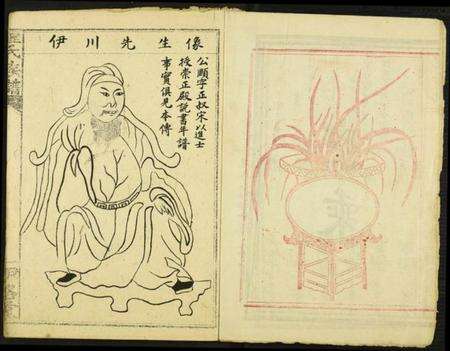 伊川先生像
公頤字正叔宋以進士
授崇正殿說書年譜
事實俱見本傳